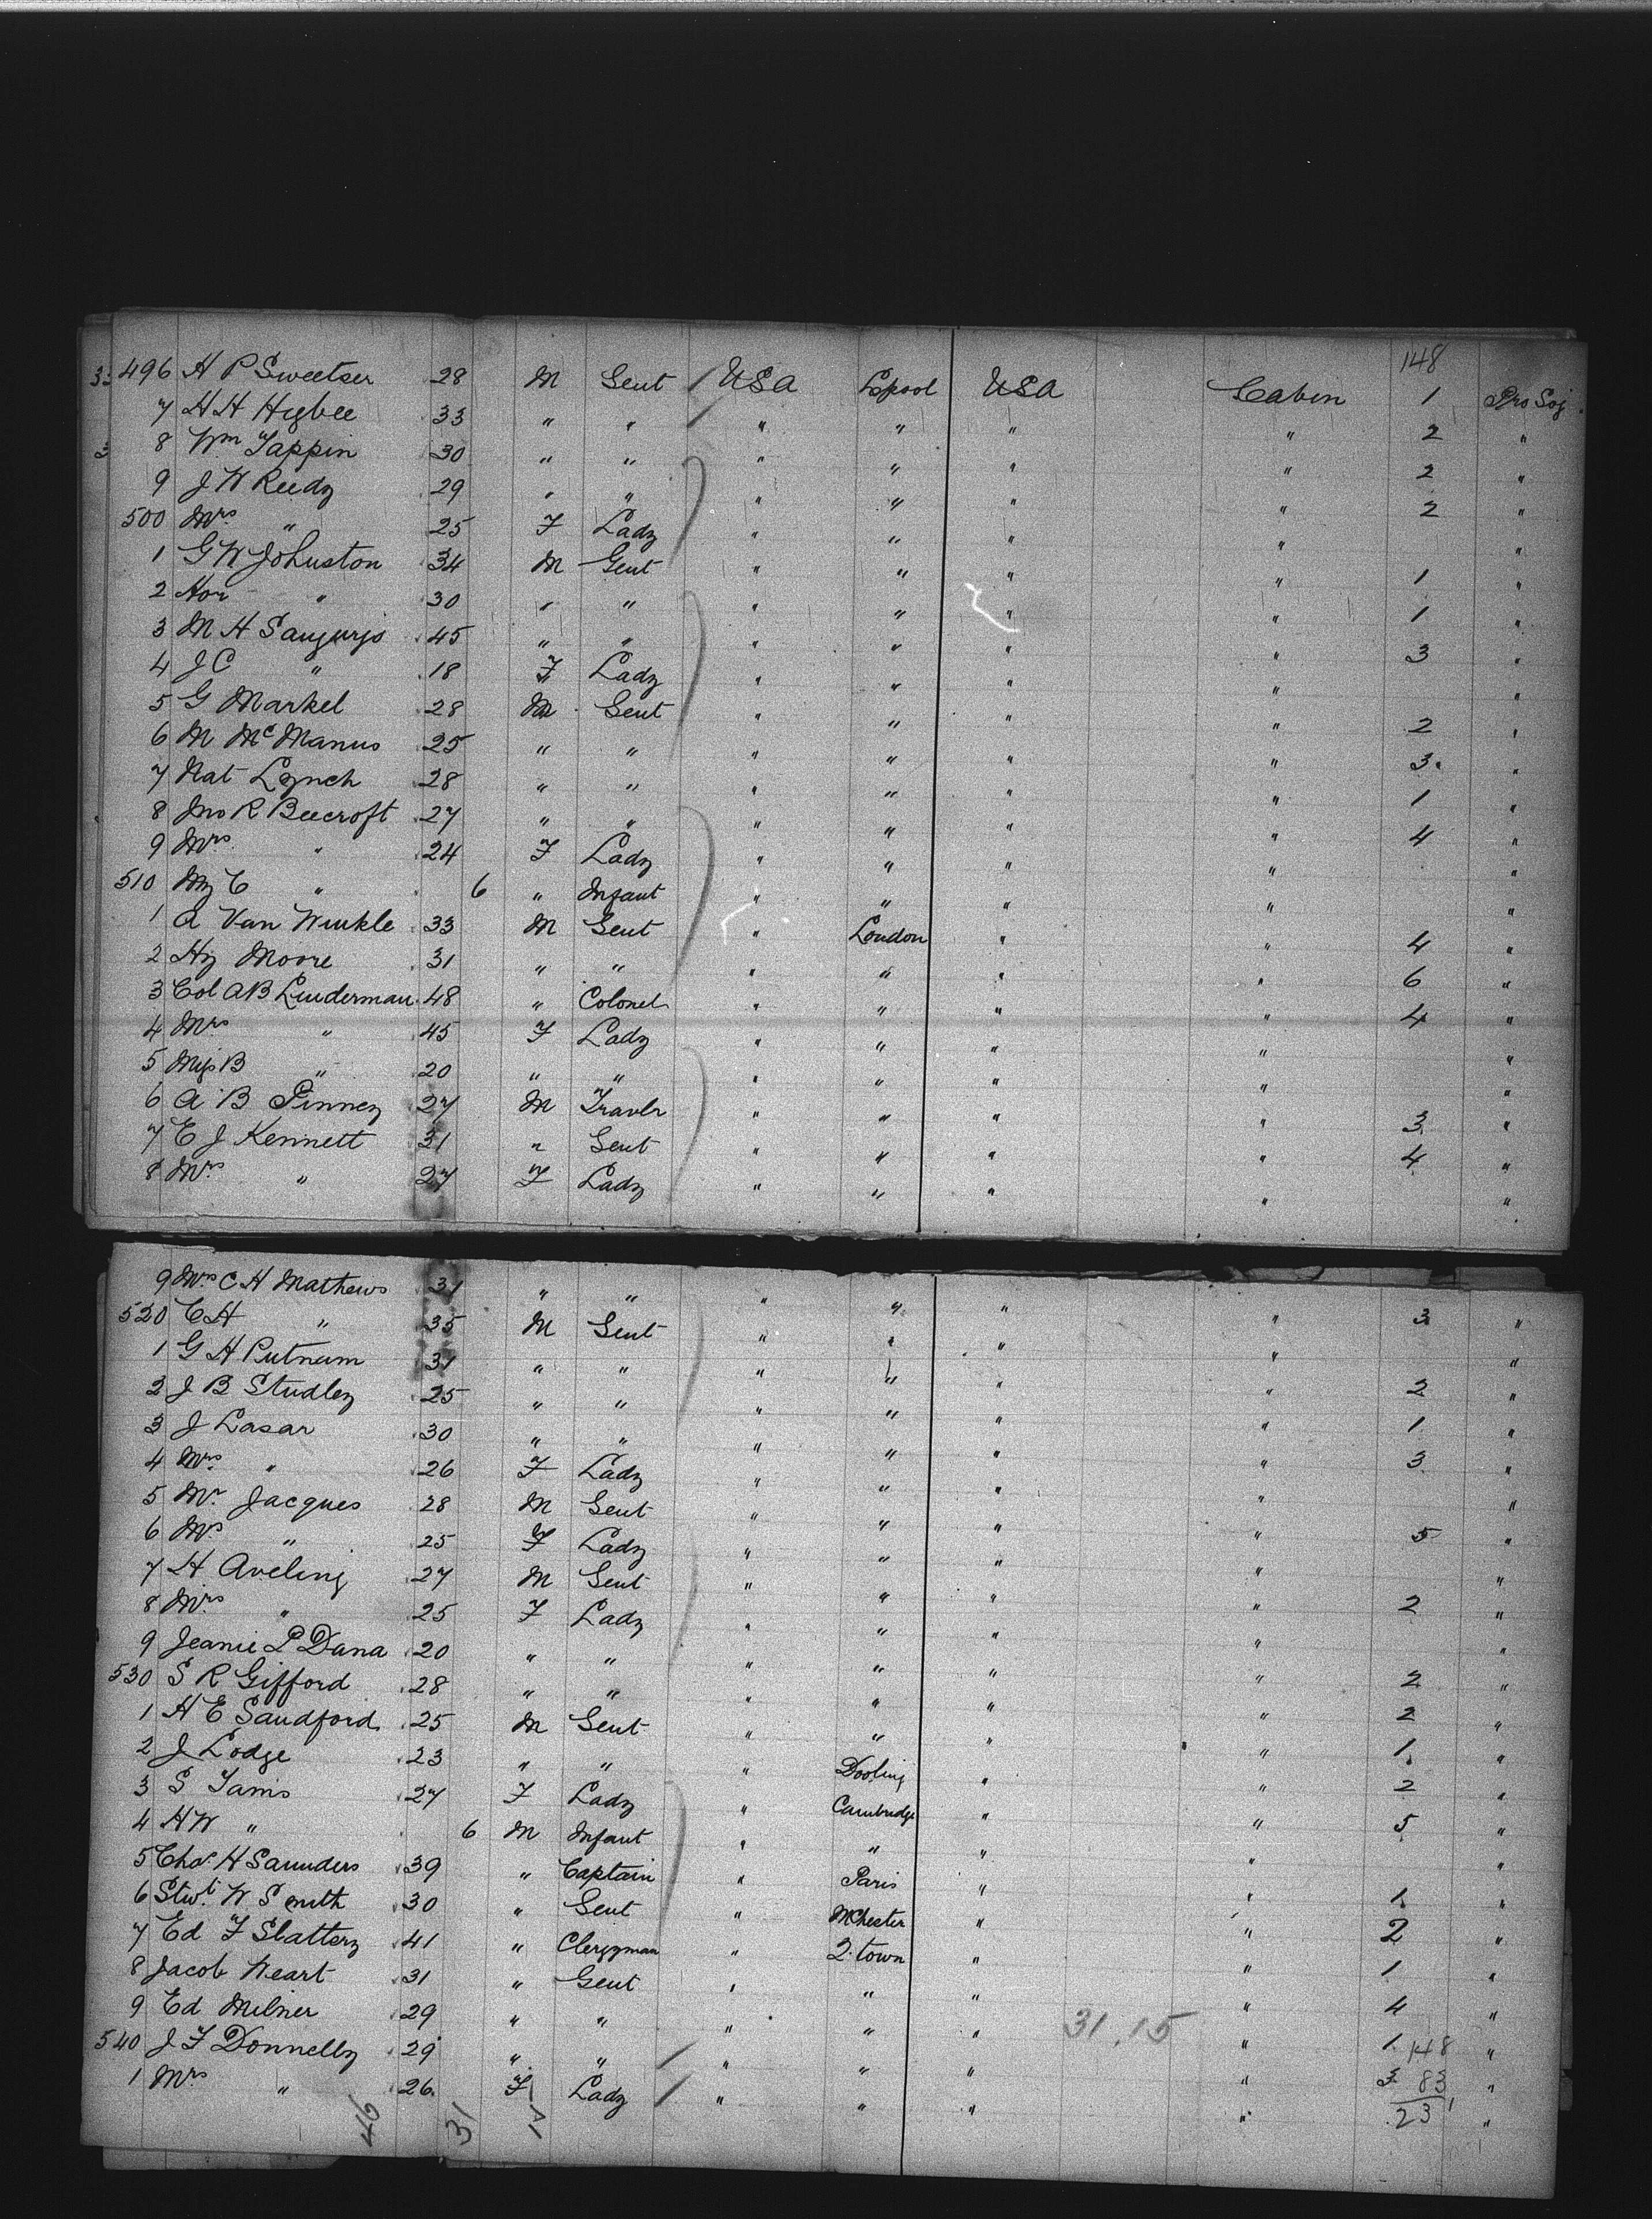 148
496 H P Sweetser 28 M Gent USA Lpool USA Cabin 1 Pro Soj
7 H H Higbee 33 " " " " " " 2 "
8 Wm Tappin 30 " " " " " " 2 "
9 J W Reedy 29 " " " " " " 2 "
500 Mrs " 25 F Lady " " " " "
1 G W Johnston 34 M Gent " " " " 1 "
2 Hon " 30 " " " " " " 1 "
3 M H 45 " " " " " " 3 "
4 J C " 18 F Lady " " " " "
5 G Markel 28 M Gent " " " " 2 "
6 M McManus 25 " " " " " " 3 "
7 Nat Lynch 28 " " " " " " 1 "
8 Jno R Beecroft 27 " " " " " " 4 "
9 Mrs " 24 F Lady " " " " "
510 C " 6 " Infant " " " " "
1 A Van Winkle 33 M Gent " London " " 4 "
2 Hy Moore 31 " " " " " " 6 "
3 Col A B Linderman 48 " Colonel " " " " 4 "
4 Mrs " 45 F Lady " " " " "
5 Miss B " 20 " " " " " " "
6 A B Pinney 27 M Travlr " " " " 3 "
7 E J Kennett 31 " Gent " " " " 4 "
8 Mrs " 27 F Lady " " " " "
9 Mrs C H Mathews 31 " " " " " " 3 "
520 C H " 35 M Gent " " " " "
1 G H Putnam 31 " " " " " " 2 "
2 J B Studley 25 " " " " " " 1 "
3 J Lasar 30 " " " " " " 3 "
4 Mrs " 26 F Lady " " " " "
5 Mr Jacques 28 M Gent " " " " 5 "
6 Mrs " 25 F Lady " " " " "
7 H Aveling 27 M Gent " " " " 2 "
8 Mrs " 25 F Lady " " " " "
9 Jeanie P Dana 20 " " " " " " 2 "
530 S R Gifford 28 " " " " " " 2 "
1 H E Sandford 25 M Gent " " " " 1 "
2 J Lodge 23 " " " " " 2 "
3 S Tams 27 F Lady " Cambridge " " 5 "
4 H W " 6 M Infant " " " " "
5 Chas H Saunders 39 " Captain " Paris " " 1 "
6 Stwt W Smith 30 " Gent " MChester " " 2 "
7 Ed F Slattery 41 " Clergyman " Q. town " " 1 "
8 Jacob Weart 31 " Gent " " " " 4 "
9 Ed Milner 29 " " " " " 31.15 " 1 "
540 J F Donnelly 29 " " " " " " 3 "
1 Mrs " 26 F Lady " " " " "
148
83
231
46 31 15